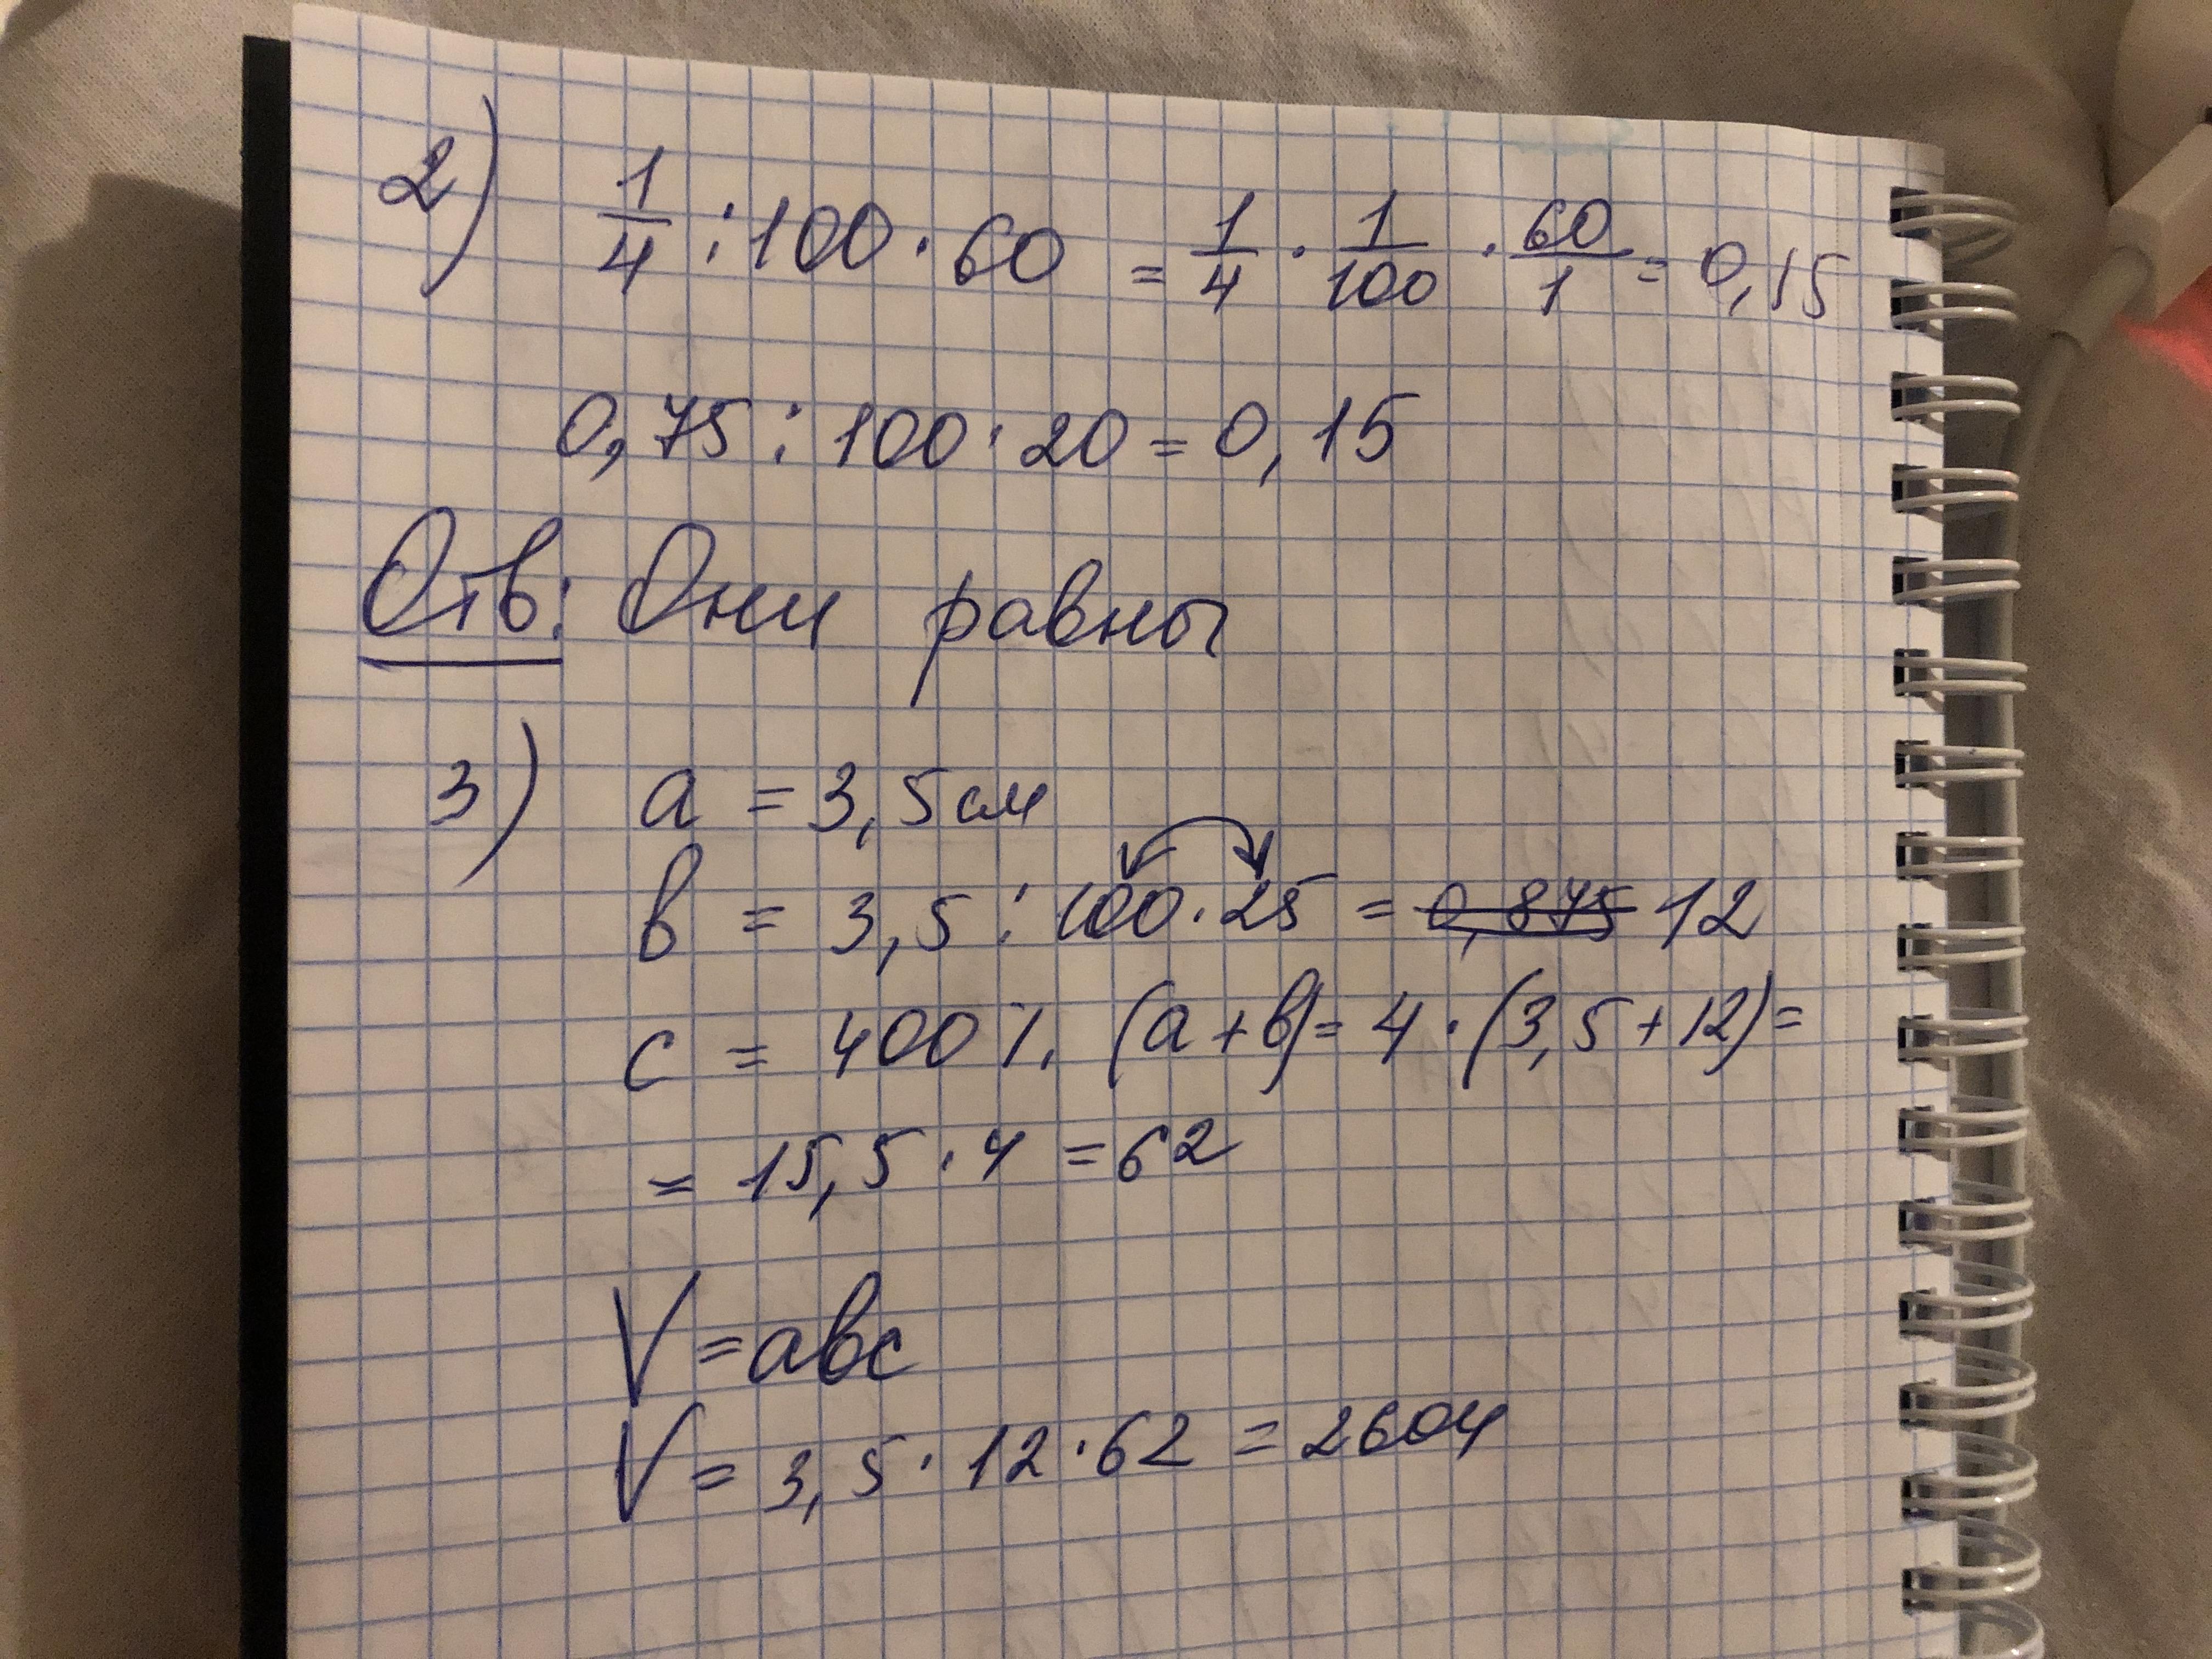 2) 1/4 : 100 · 60 = 1/4 · 1/100 · 60/1 = 0,15
0,75 : 100 · 20 = 0,15
Отв: Они равны
3) a = 3,5 см
в = 3,5 : 100 · 25 = 0,875 12
c = 400 %. (a + в) = 4 · (3,5 + 12) =
= 15,5 · 4 = 62
V = aвc
V = 3,5 · 12 · 62 = 2604